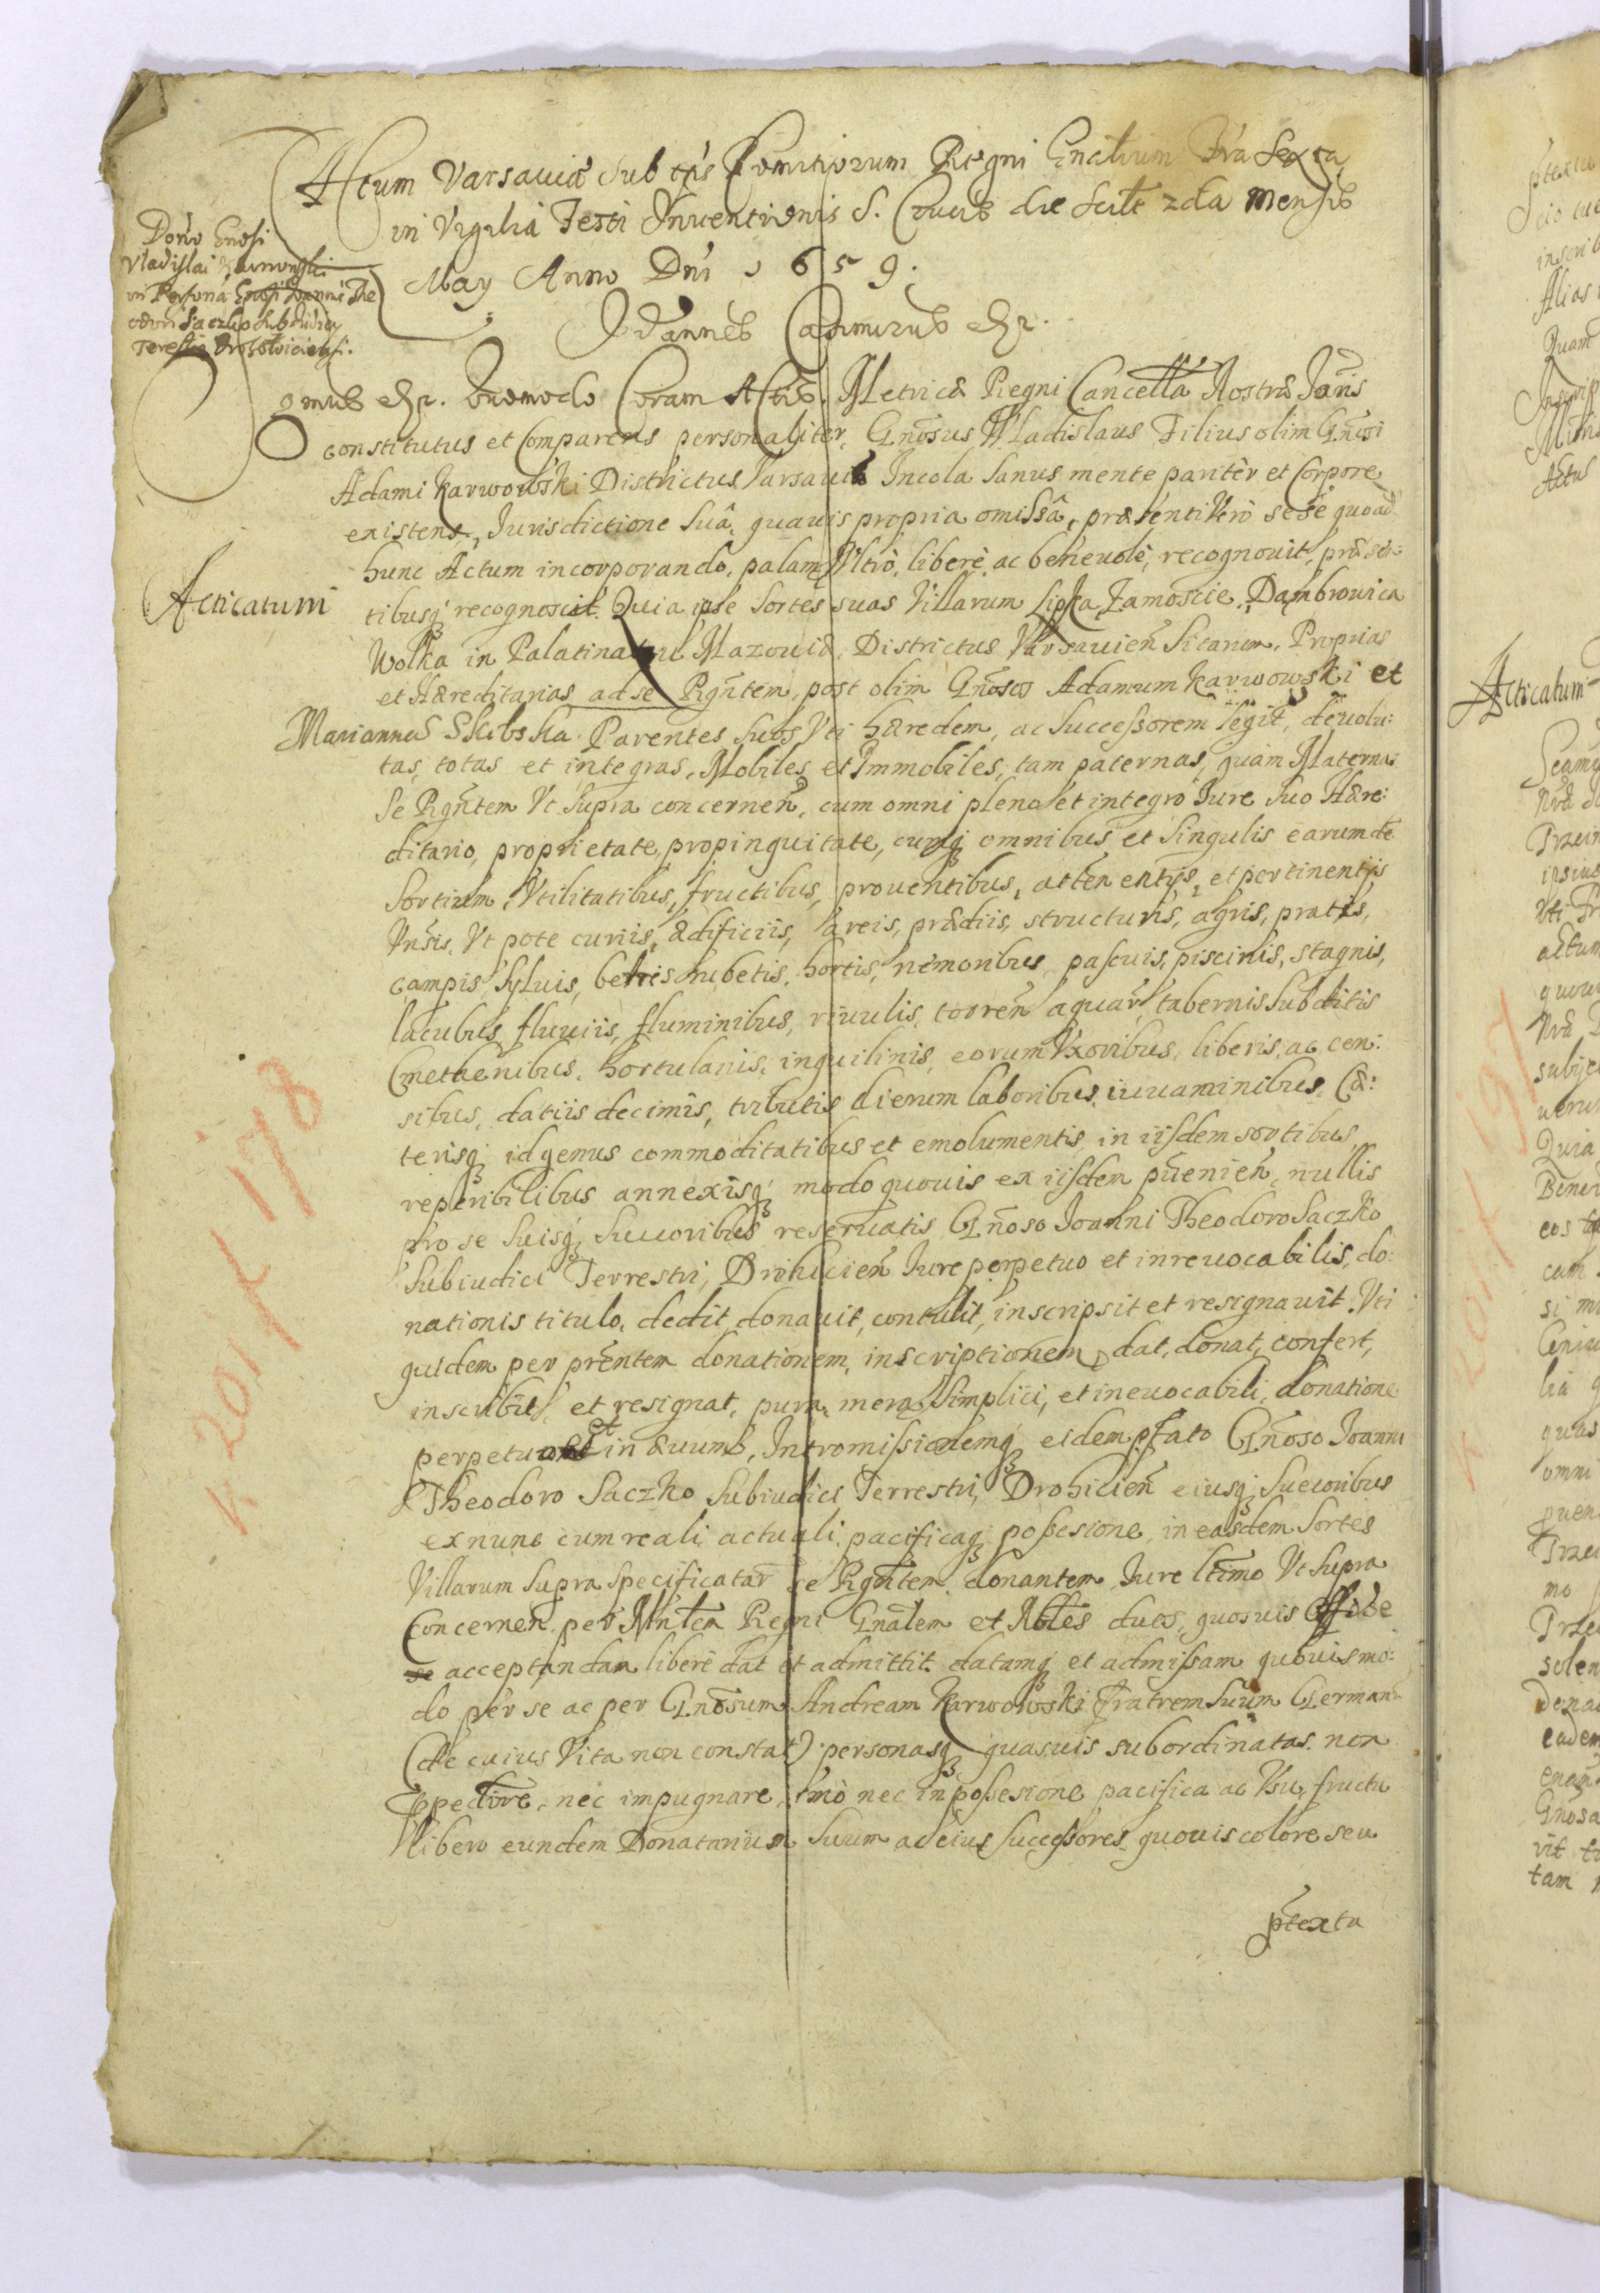 Actum Varsauiæ sub tp̄s Comitiorum Regni Gn̄alium Fr̄ia Sexta
in Vigilia Festi Inuentionis S. Crucis die scilt 2da Mensis
May Anno Dn̄i 1659.
Joannes Casimirus etz.
Don̄o Gn̄osi
Vladislai Karwowski
in Personā Gn̄osi Joannis The
odori Saczko Subiudicis
Terestris
omnib etz. Quomodo Coram Actis Metrices Regni Cancella Nostra
constitutus et Comparens personaliter, Gn̄osus Wladislaus Filius olim Gn̄osi
Adami Karwowski Districtus Varsauien Incola sanus mente paritèr et Corpore
existens, Jurisdictione suâ, quauis propria omissâ, præsenti Verò sese quoad
hunc Actum incorporando, palam Vltrò, liberè ac beneuolè, recognouit, præsen:
Acticatum
tibusq recognoscit. Quia ipse sortes suas Villarum Lipka, Zamoscie, Dambrowica
Wolka in Palatinatu Mazouiæ, Districtus Varsauien sitarum, Proprias
et Hæreditarias ad se Rgn̄tem, post olim Gn̄osos Adamum Karwowski et
Mariannam Skibska Parentes suos Vti hæredem, ac successorem legit, deuolu:
tas, totas et integras, Mobiles et Immobiles, tam paternas, quam Materna
se Rgn̄tem Vt supra concernen, cum omni pleno et integro Jure suo Hære:
ditario, proprietate, propinquitate, cumq omnibus et singulis earumde
sortium Vtilitatibus, fructibus, prouentibus, attinentijs et pertinentijs
Vnsis, Vt pote curiis, ædificiis, areis, prædiis, structuris, agris, pratis,
campis syluis, betris rubetis, hortis, nemoribus, pascuis, piscinis, stagnis,
lacubus, fluuiis, fluminibus, riuulis, torren aquar, tabernis subditis
Cmethonibus, hortulanis, inquilinis, eorum Vxoribus, liberis, ac cen:
sibus, datiis decimis, tributis dierum laboribus, iuuaminibus, Cæ:
terisq id genus commoditatibus et emolumentis, in iisdem sortibus
reperibilibus annexisq, modo quouis ex iisdem puenien, nullis
pro se suisq succoribus reseruatis, Gn̄oso Joanni Theodoro Saczko
Subiudici Terrestri, Drohicien Jure perpetuo et inreuocabilis, do:
nationis titulo, dedit, donauit, contulit, inscripsit et resignauit. Vti
quidem per prn̄tem donationem, inscriptionem, dat, donat, confert,
inscribit, et resignat, pura, mera, simplici, et ineuocabili, donatione
perpetuo et in æuum, Intromissionemq eidem pfato Gn̄oso Joanni
Theodoro Saczko Subiudici Terrestri, Drohicien eiusq succoribus
ex nunc cum reali, actuali, pacificaq possesione, in easdem sortes
Villarum supra specificatar se Rgn̄tem, donantem Jure ltimo Vt supra
Concernen. per Mn̄tem Regni Gn̄alem et Nobles duos, quosuis
acceptandam liberè dat et admittit. datamq et admissam quouismo:
do per se ac per Gn̄osum Andream Karwowski Fratrem suum German
(de cuius Vita non constat) personasq quasuis subordinatas, non
Jppedire, nec impugnare, imò nec in possesione pacifica ac Vsu, fructu
libero eundem Donatarium suum ac eius successores quouis colore seu
p̄textu